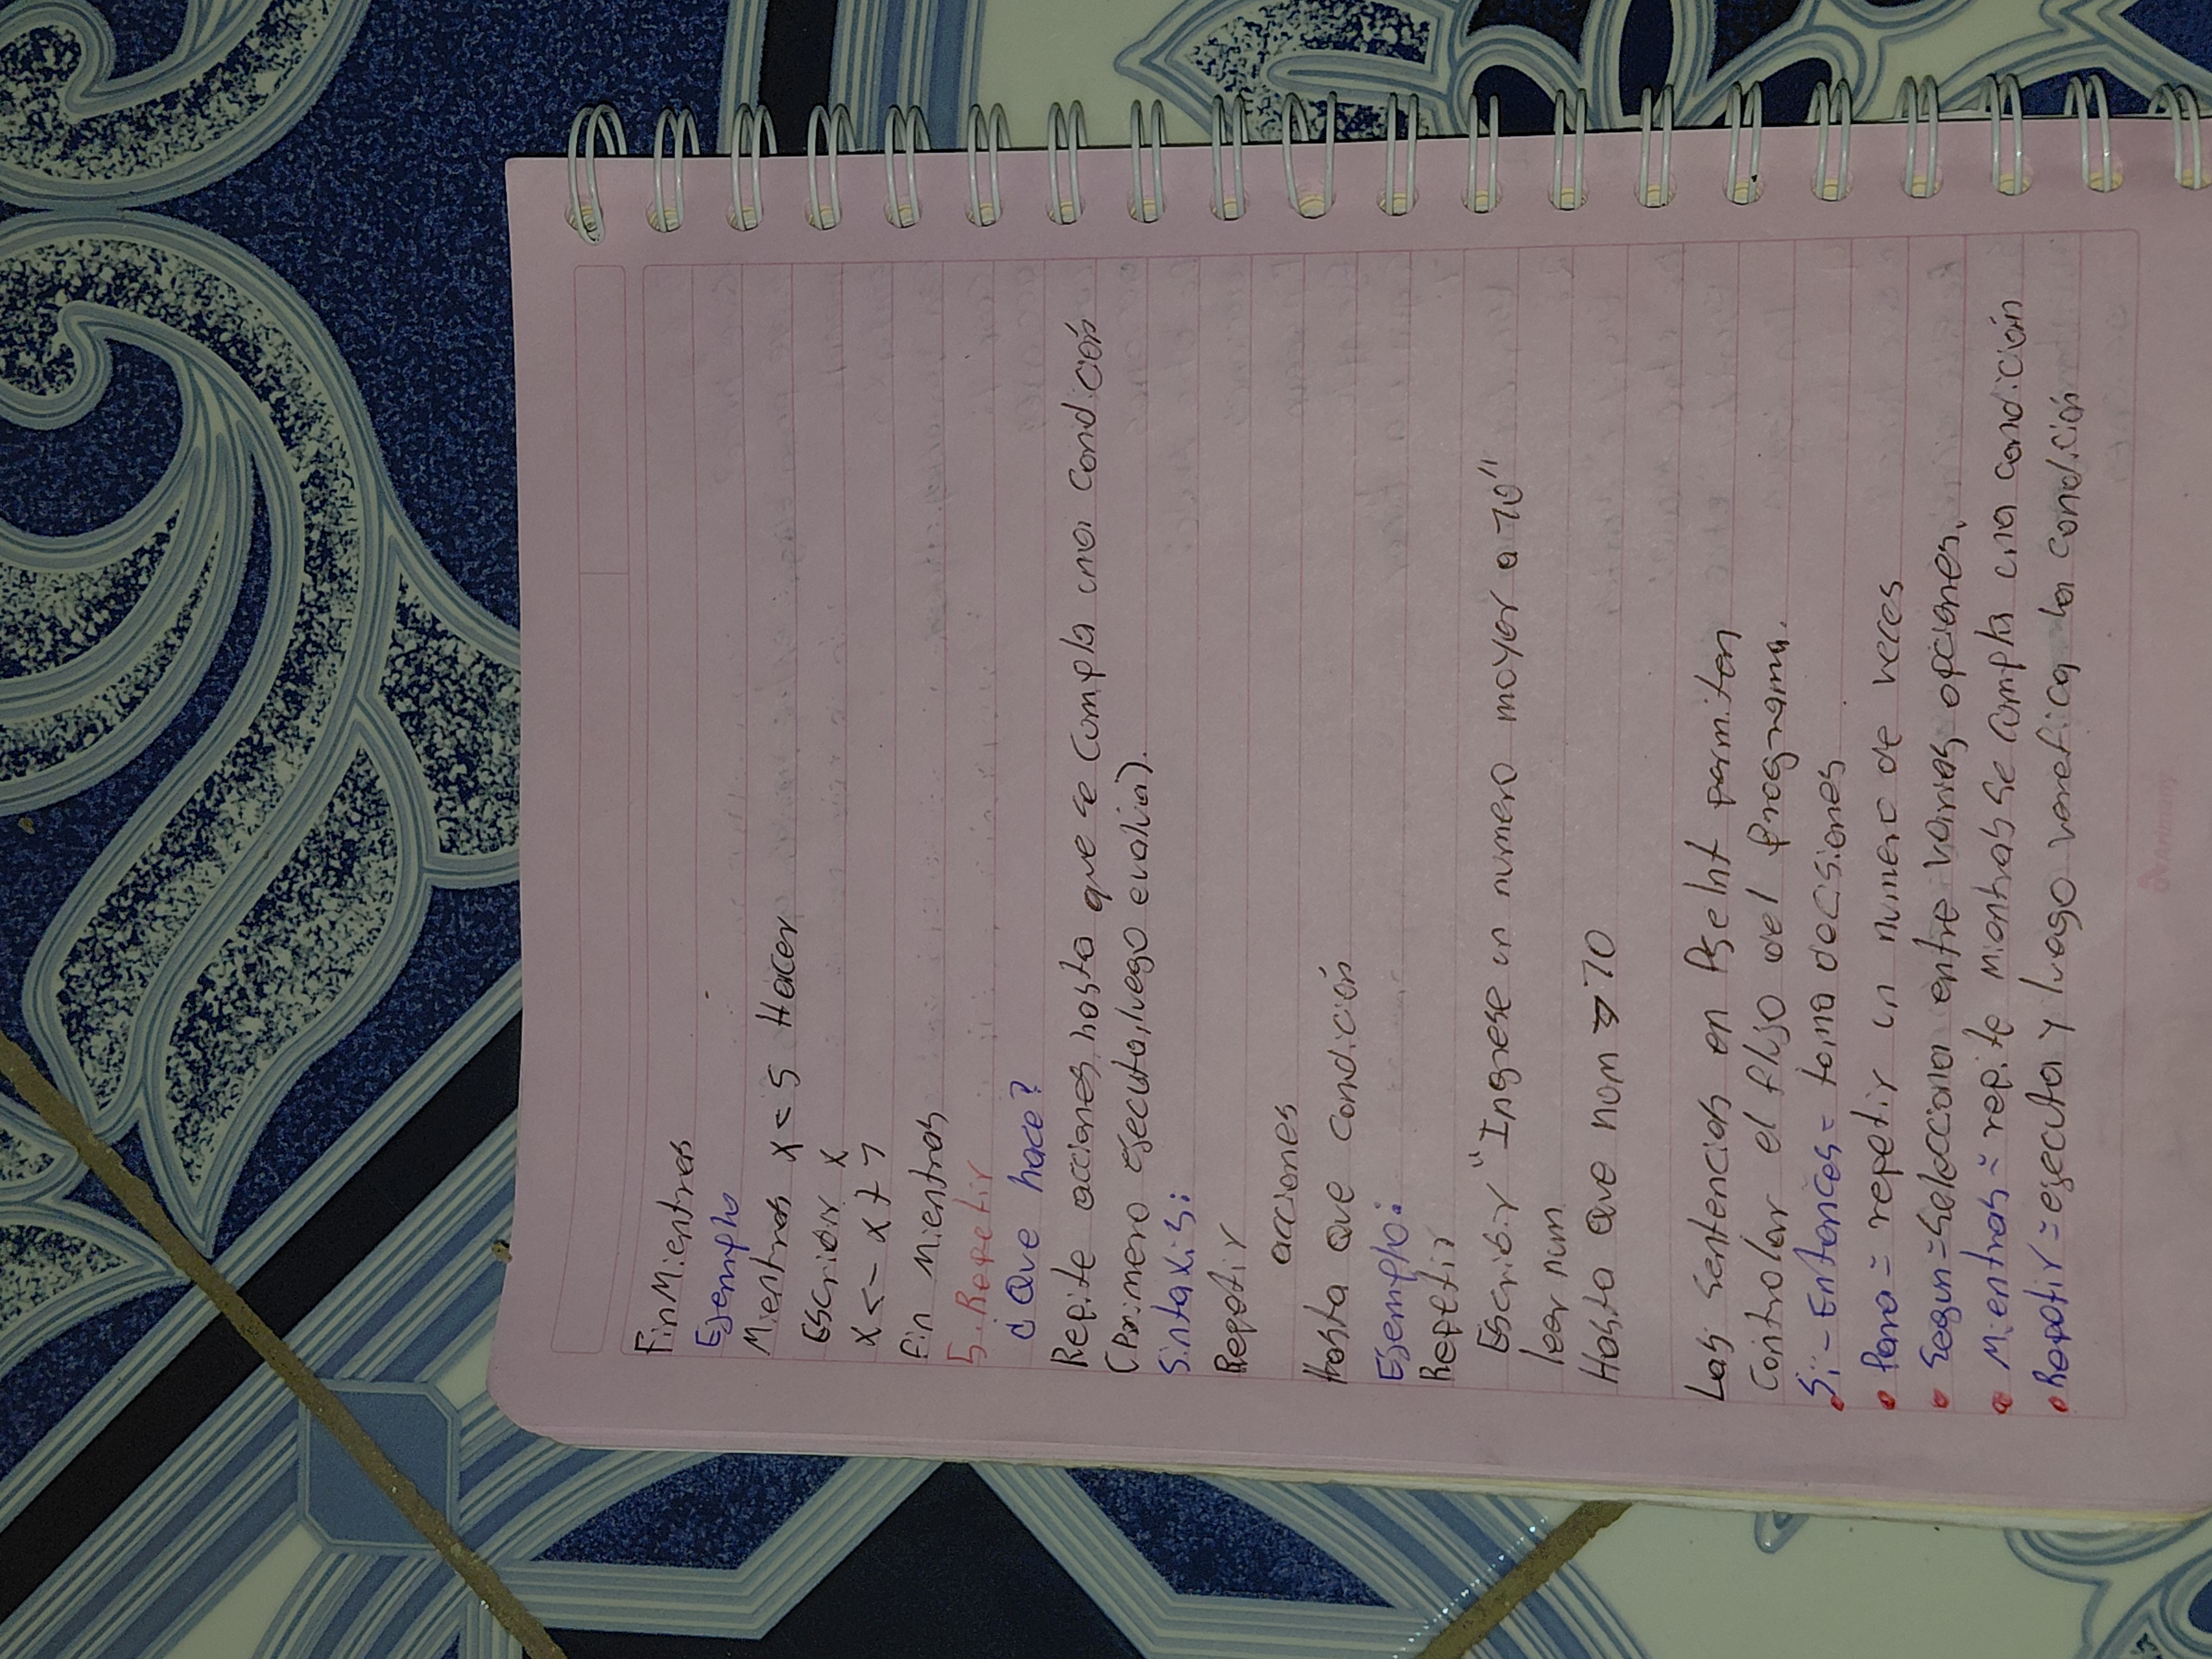 FinMientras
Ejemplo
Mientras x < 5 Hacer
Escribir x
x <- x + 1
Fin Mientras
5. Repetir
¿Que hace?
Repite acciones hasta que se cumpla una condición
(Primero ejecuta, luego evalua).
Sintaxis:
Repetir
acciones
Hasta Que condición
Ejemplo:
Repetir
Escribir "Ingrese un numero mayor a 10"
leer num
Hasta Que num > 10
Las sentencias en PseInt permiten
Controlar el flujo del programa.
• Si - Entonces = toma decisiones
• Para = repetir un numero de veces
• Segun = Selecciona entre varias opciones.
• Mientras = repite mientras se cumpla una condición
• Repetir = ejecuta y luego verifica la condición